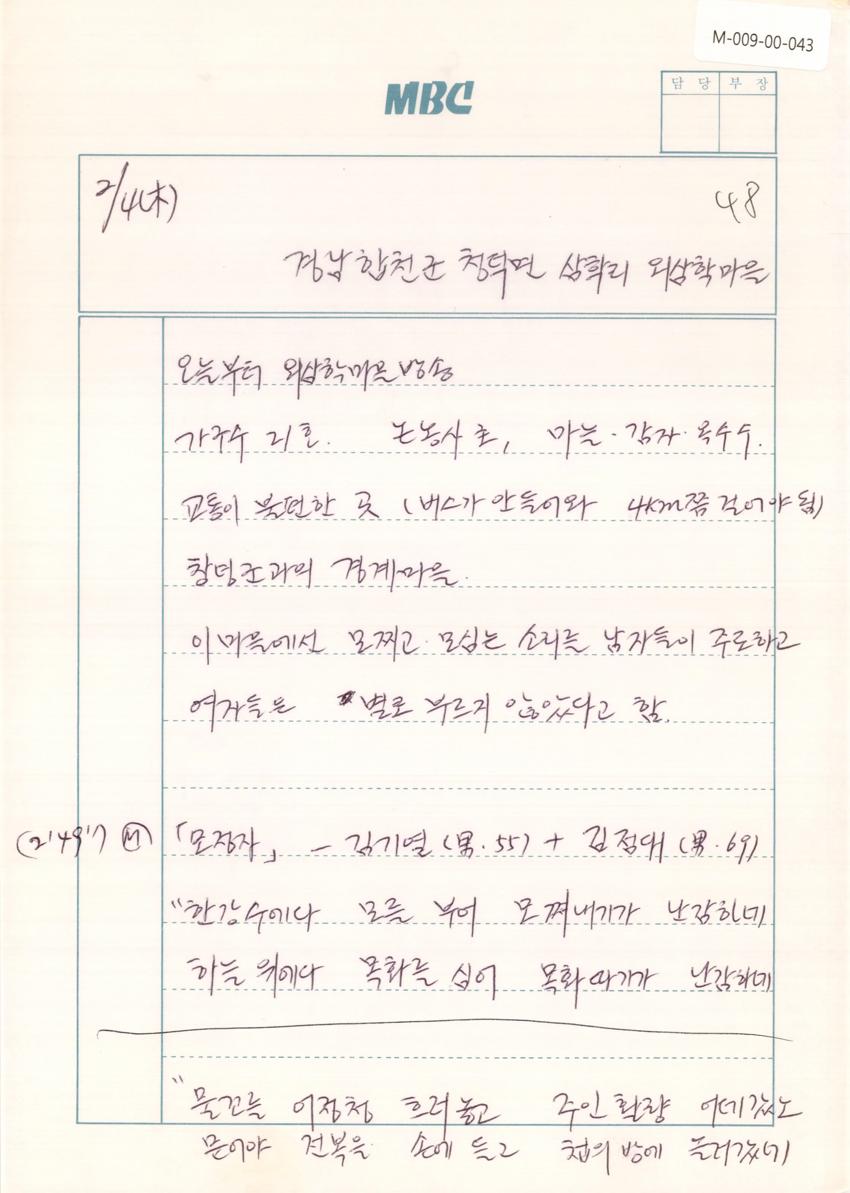 M-009-00-043
MBC
담 당 부 장
2/4(木)
48
경남 합천군 청덕면 삼학리 외삼학마을
오늘부터 외삼학마을 방송
가구수 21호. 논농사 초, 마늘·감자·옥수수.
교통이 불편한 곳 (버스가 안들어와 4km쯤 걸어야 됨)
창녕군과의 경계마을.
이 마을에선 모찌고·모심는 소리를 남자들이 주로하고
여자들은 별로 부르지 않았다고 함.
(2'49") Ⓜ 「모정자」 - 김기열 (男·55) + 김점대 (男·69)
"한강수에다 모를 부어 모쪄내기가 난감하네
하늘 위에다 목화를 심어 목화따기가 난감하네
"물꼬를 어정청 흘려놓고 주인 활량 어데갔노
문어야 전복을 손에 들고 첩의 방에 놀러갔네